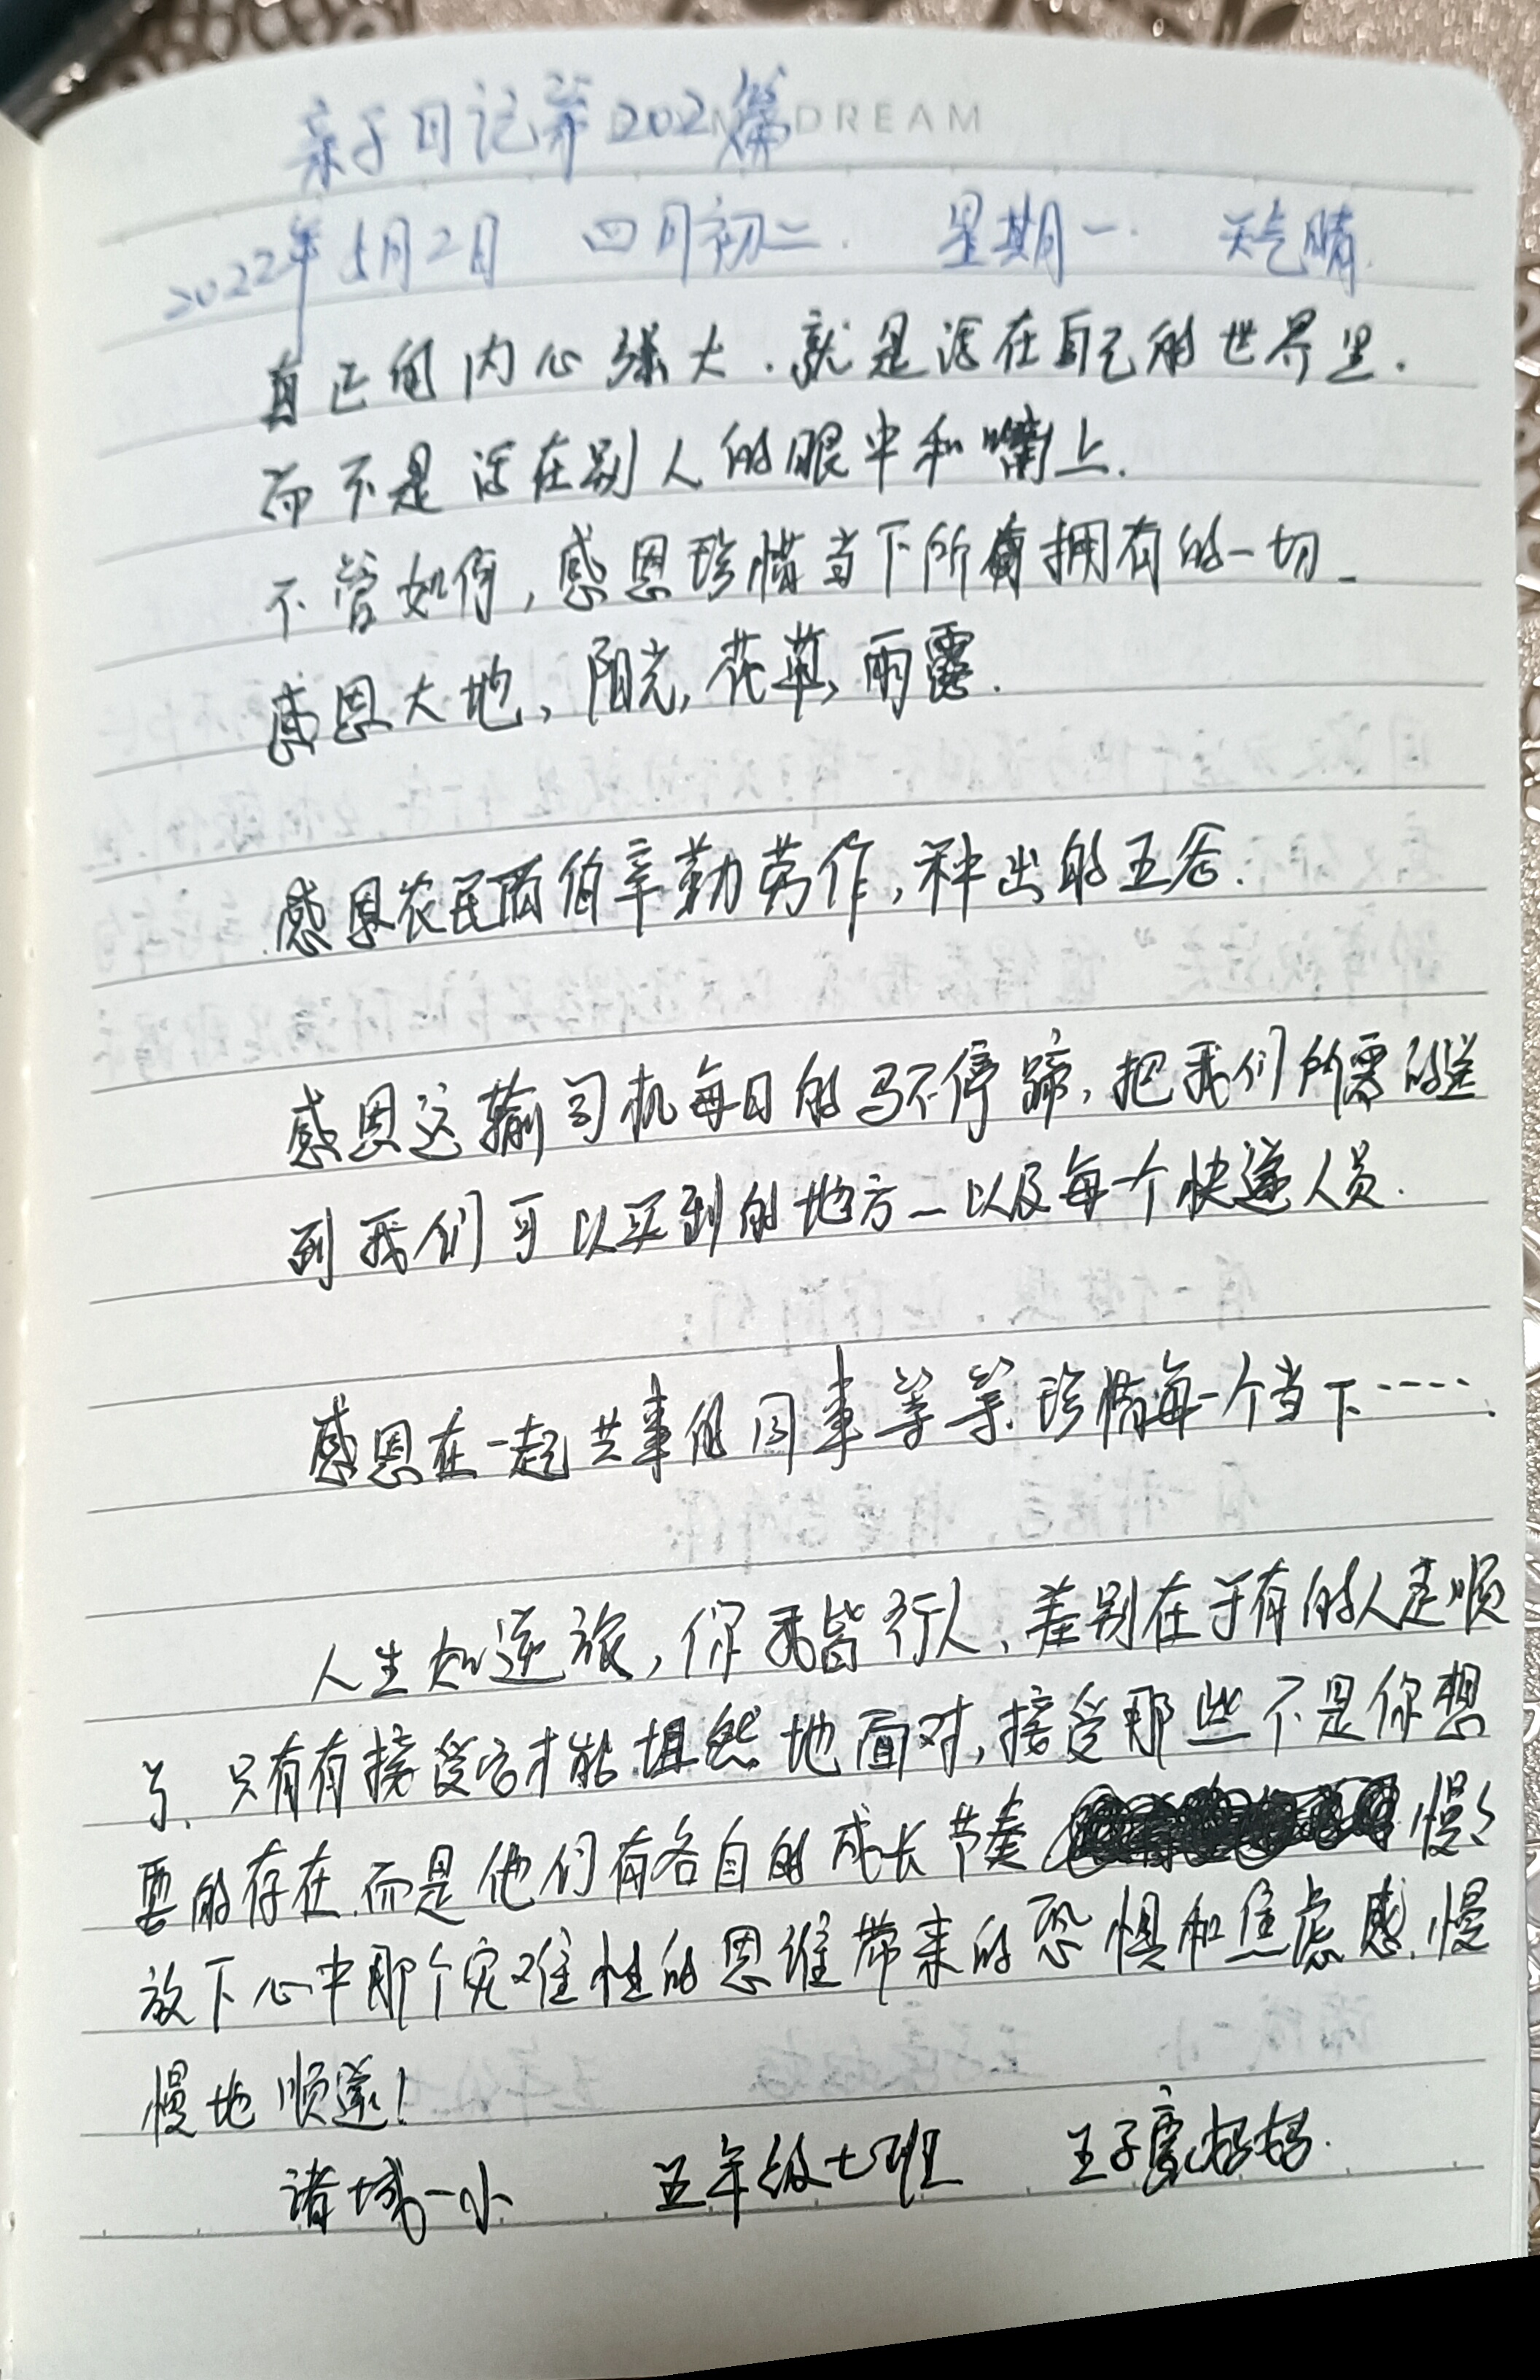 亲子日记第202篇
DREAM
2022年5月2日 四月初二. 星期一. 天气晴.
真正的内心强大.就是活在自己的世界里.
而不是活在别人的眼中和嘴上.
不管如何,感恩珍惜当下所有拥有的一切.
感恩大地,阳光,花草,雨露.
感恩农民伯伯辛勤劳作,种出的五谷.
感恩运输司机每日的马不停蹄,把我们所需的送
到我们可以买到的地方_以及每个快递人员.
感恩在一起共事的同事等等.珍惜每一个当下……
人生如逆旅,你我皆行人、差别在于有的人走顺
了.只有有接受它才能坦然地面对,接受那些不是你想
要的存在.而是他们有各自的成长节奏 慢慢
放下心中那个灾难性的思维带来的恐惧和焦虑感.慢
慢地顺遂!
诸城一小 五年级七班 王子豪妈妈.